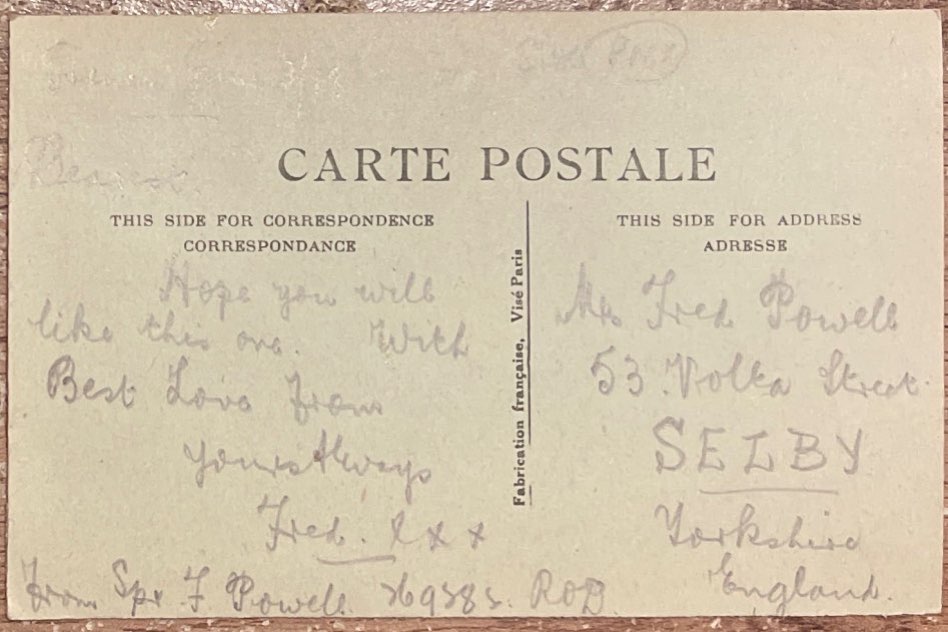 Dearest
CARTE POSTALE
THIS SIDE FOR CORRESPONDENCE
CORRESPONDANCE
Hope you will
like this one. With
Best Love From
Yours Always
Fred. x x x
From Spr F Powell
Fabrication française, Visé Paris
THIS SIDE FOR ADDRESS
ADRESSE
Fred Powell
53 Street
SELBY
Yorkshire
England.